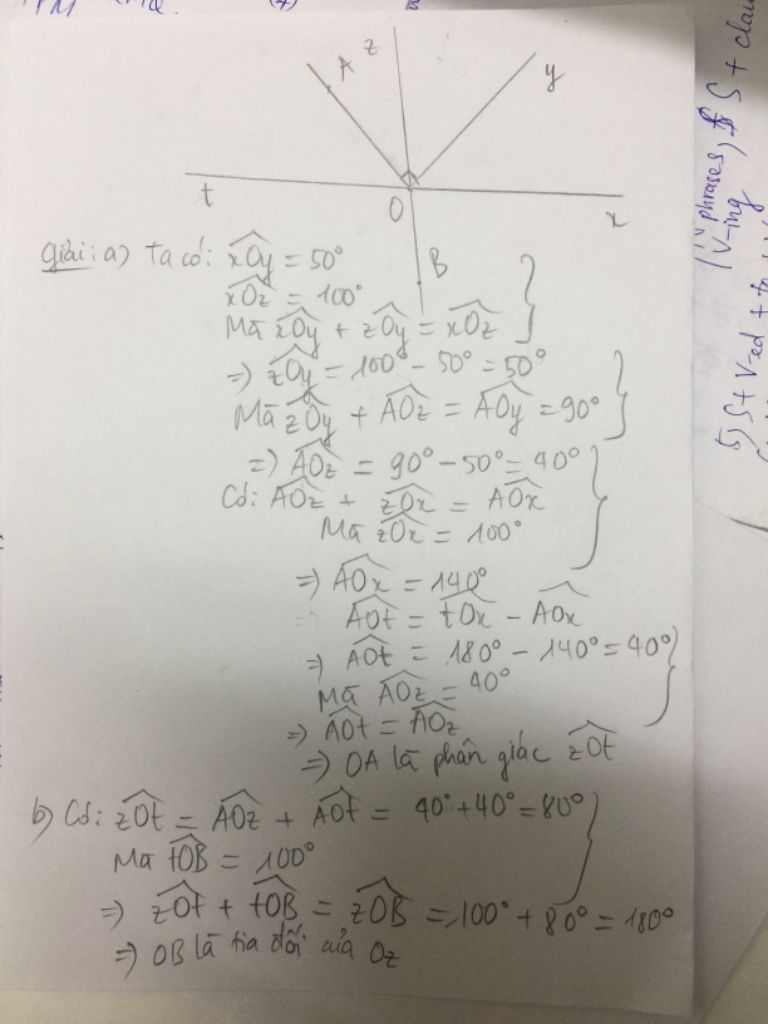 A
z
y
t
O
x
B
Giải: a) Ta có: xOy = 50°
xOz = 100°
Mà xOy + zOy = xOz
=> zOy = 100° - 50° = 50°
Mà zOy + AOz = AOy = 90°
=> AOz = 90° - 50° = 40°
Có: AOz + zOx = AOx
Mà zOx = 100°
=> AOx = 140°
AOt = tOx - AOx
=> AOt = 180° - 140° = 40°
Mà AOz = 40°
=> AOt = AOz
=> OA là phân giác zOt
b) Có: zOt = AOz + AOt = 40° + 40° = 80°
Mà tOB = 100°
=> zOt + tOB = zOB = 100° + 80° = 180°
=> OB là tia đối của Oz
phrases, S + clau
V-ing
5) S + V-ed + to